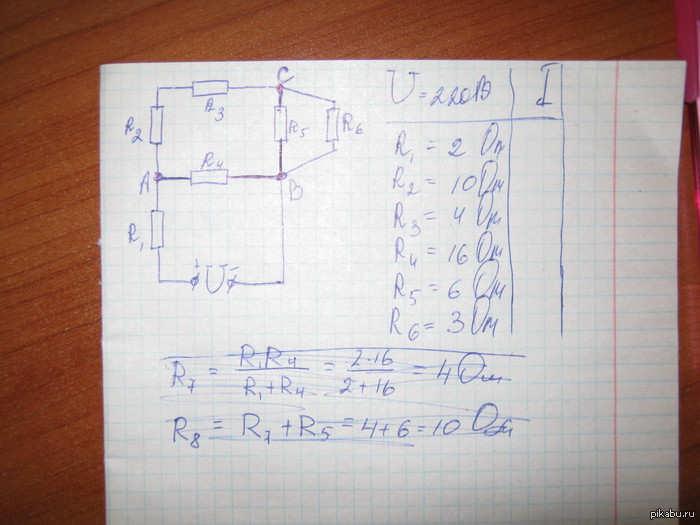 R3
C
R2
R5
R6
R4
A
B
R1
+ U -
U = 220В I
R1 = 2 Ом
R2 = 10 Ом
R3 = 4 Ом
R4 = 16 Ом
R5 = 6 Ом
R6 = 3 Ом
R7 = R1R4 / R1+R4 = 2·16 / 2+16 = 4 Ом
R8 = R7 + R5 = 4+6 = 10 Ом
pikabu.ru